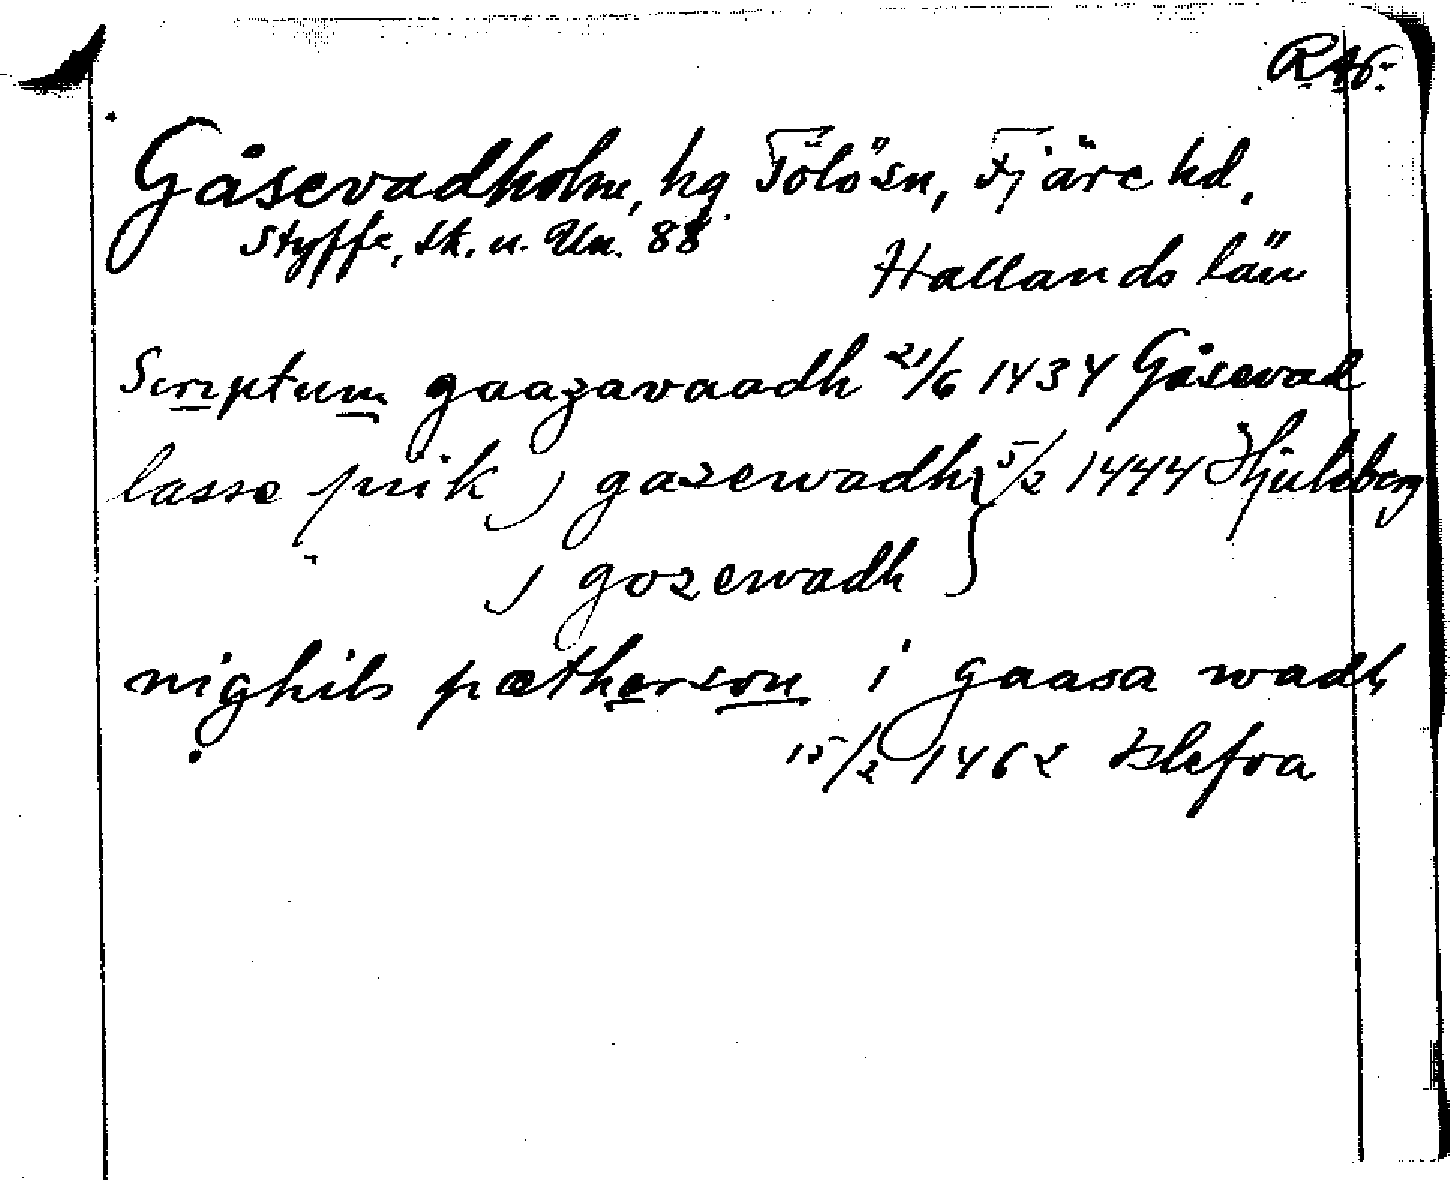 RAp.
Gåsevadholm, hg Tölö sn, Fjäre hd.
Styffe, Sk. u. Un. 88
Hallands län
Scriptum gaazavaadh 21/6 1434 Gåsevad
lasse prik j gazewadh } 5/2 1444 Hjuleberg
j gozewadh
nighils pætherson i gaasa wadh
15/2 1462 Elefra